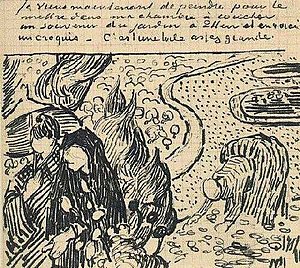 Je viens maintenant de peindre pour le
mettre dans ma chambre à coucher
un souvenir du jardin à Etten et en voici
un croquis. C'est une toile assez grande